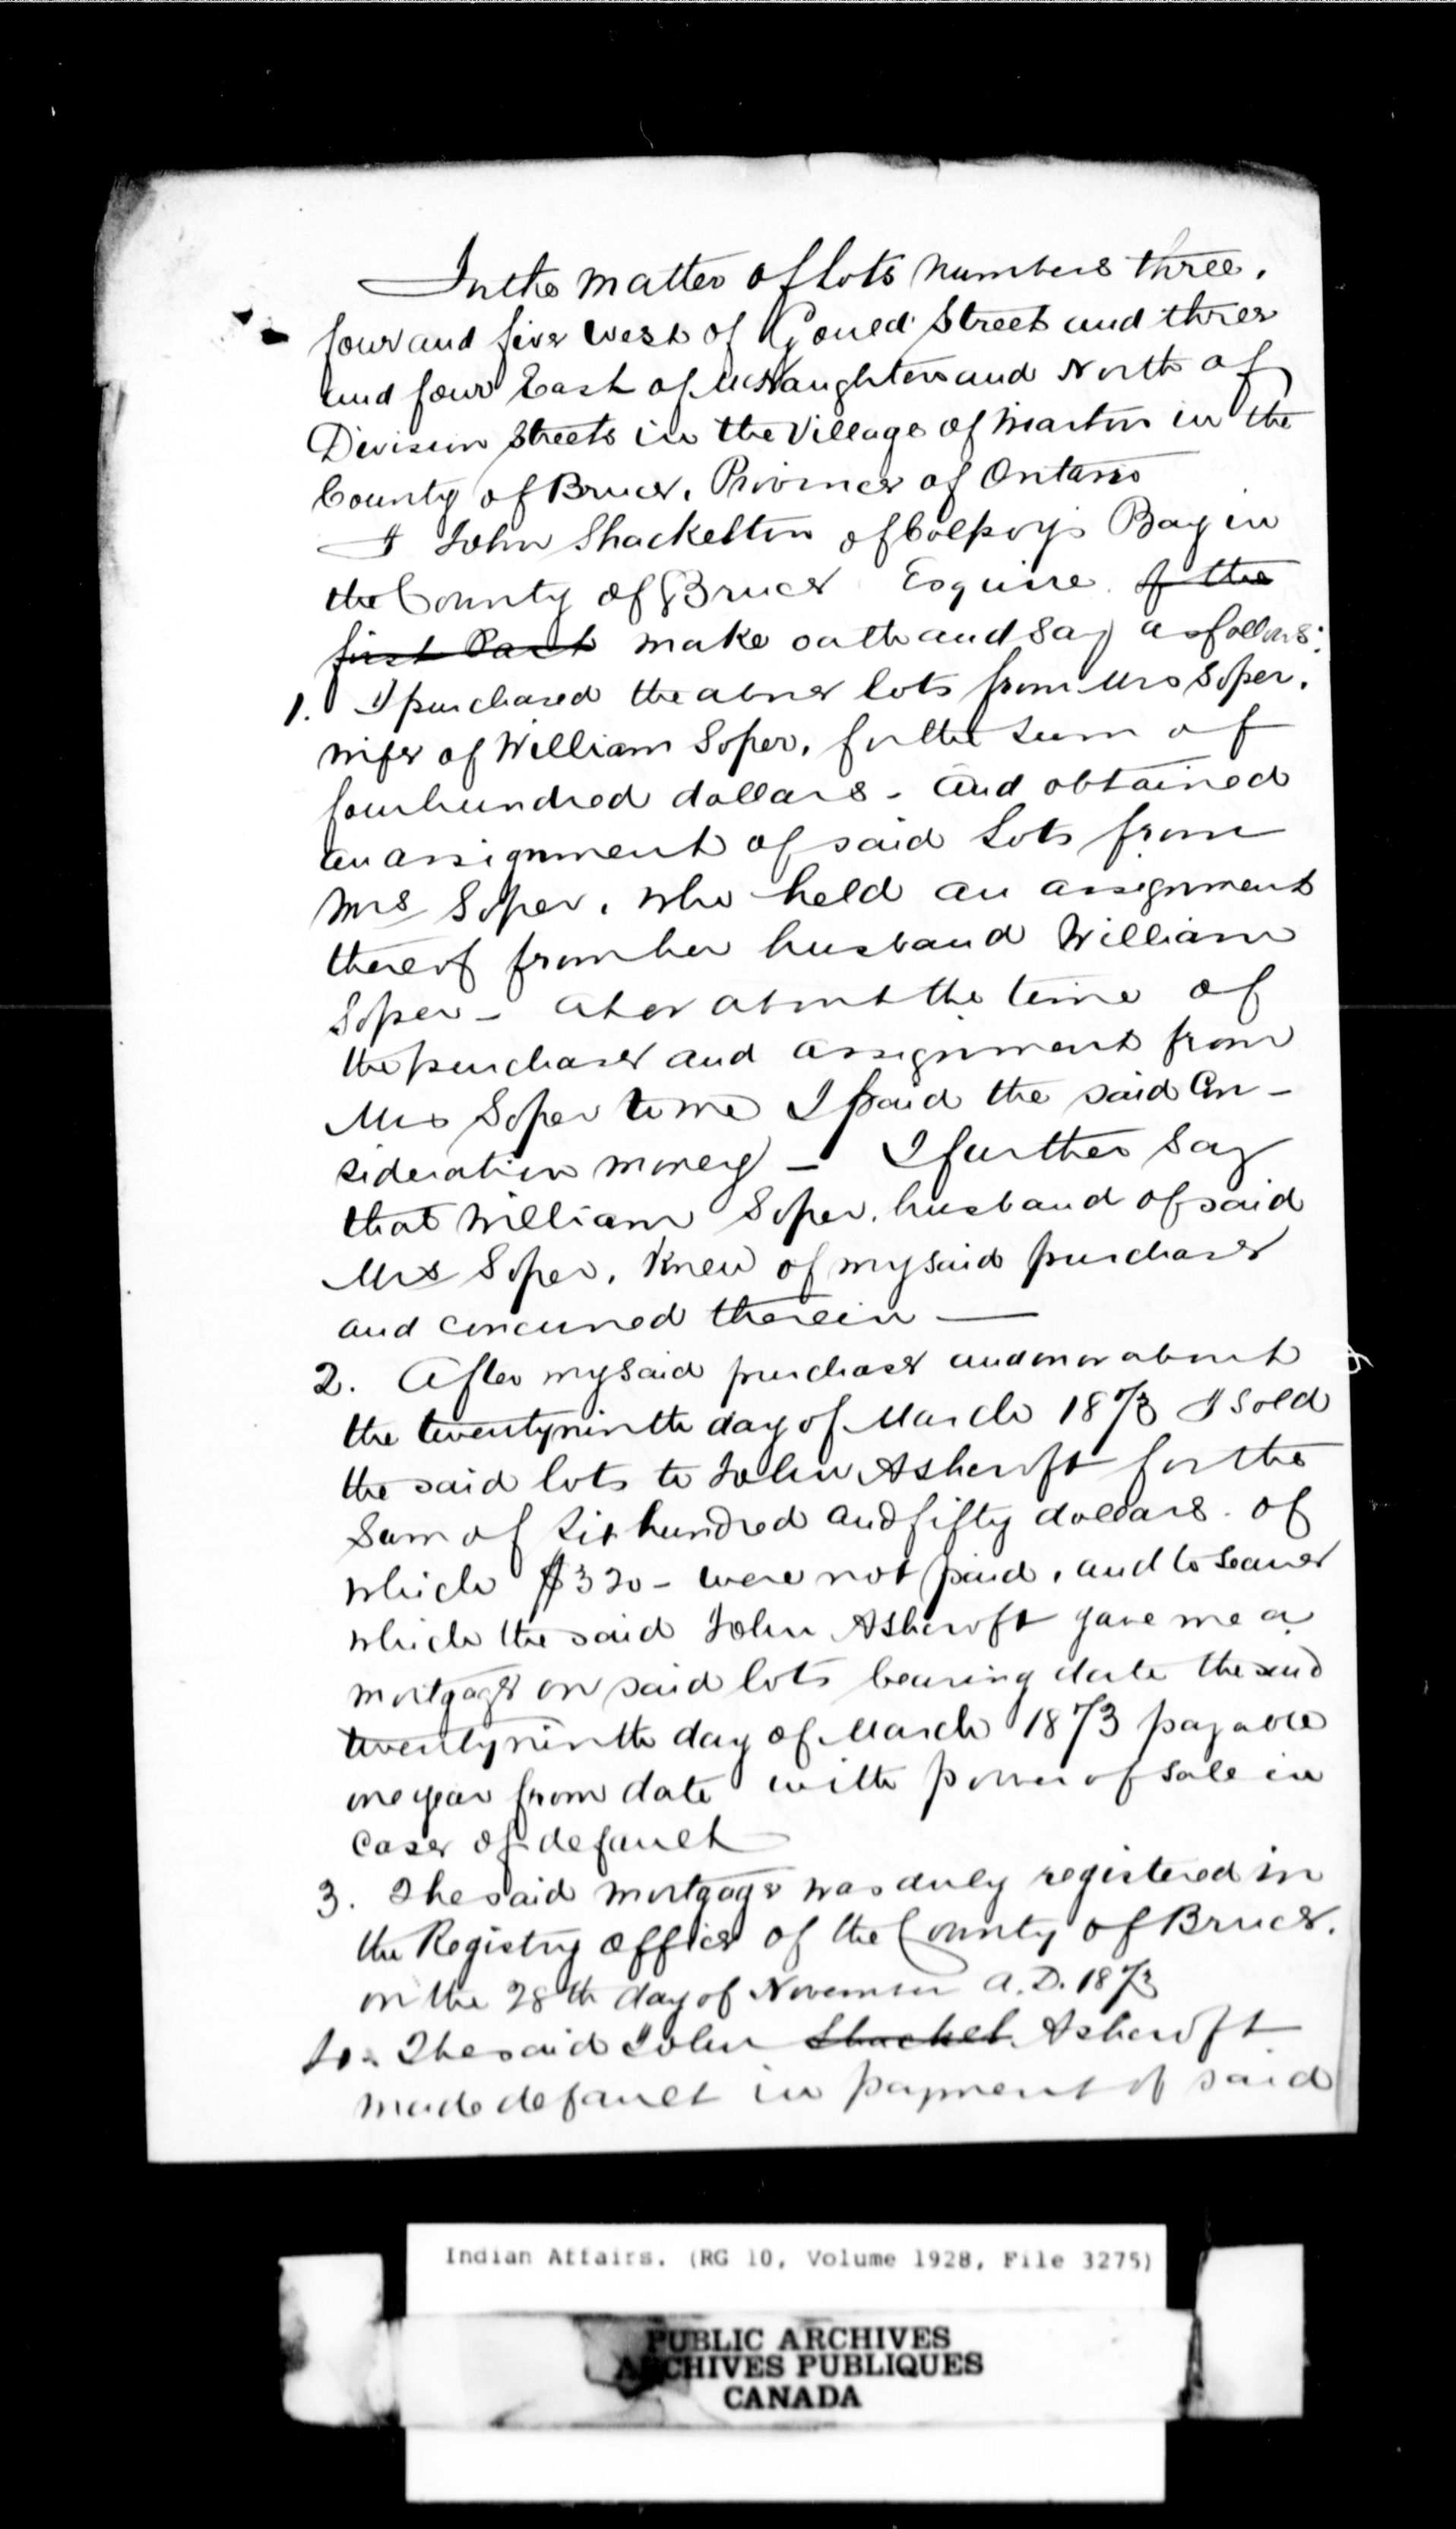 In the matter of lots numbers three,
four and five West of Gould Street and three
and four East of McNaughten and North of
Division Streets in the Village of Wiarton in the
County of Bruce, Province of Ontario
I John Shackelton of Colpoys Bay in
the County of Bruce Esquire of the
first Part make oath and say as follows:
1. I purchased the above lots from Mrs Soper,
wife of William Soper, for the sum of
four hundred dollars - and obtained
an assignment of said Lots from
Mrs Soper, who held an assignment
thereof from her husband William
Soper - At or about the time of
the purchase and assignment from
Mrs Soper to me I paid the said Con-
sideration money - I further say
that William Soper, husband of said
Mrs Soper, knew of my said purchase
and concurred therein —
2. After my said purchase and on or about
the twentyninth day of March 1873 I sold
the said lots to John Ashcroft for the
Sum of Six hundred and fifty dollars. of
which $320 - were not paid, and to secure
which the said John Ashcroft gave me a
mortgage on said lots bearing date the said
twentyninth day of March 1873 payable
one year from date with power of sale in
case of default
3. The said mortgage was duly registered in
the Registry Office of the County of Bruce.
on the 28th day of November A.D. 1873
4. The said John Shackel Ashcroft
made default in payment of said
Indian Affairs. (RG 10, Volume 1928, File 3275)
PUBLIC ARCHIVES
ARCHIVES PUBLIQUES
CANADA